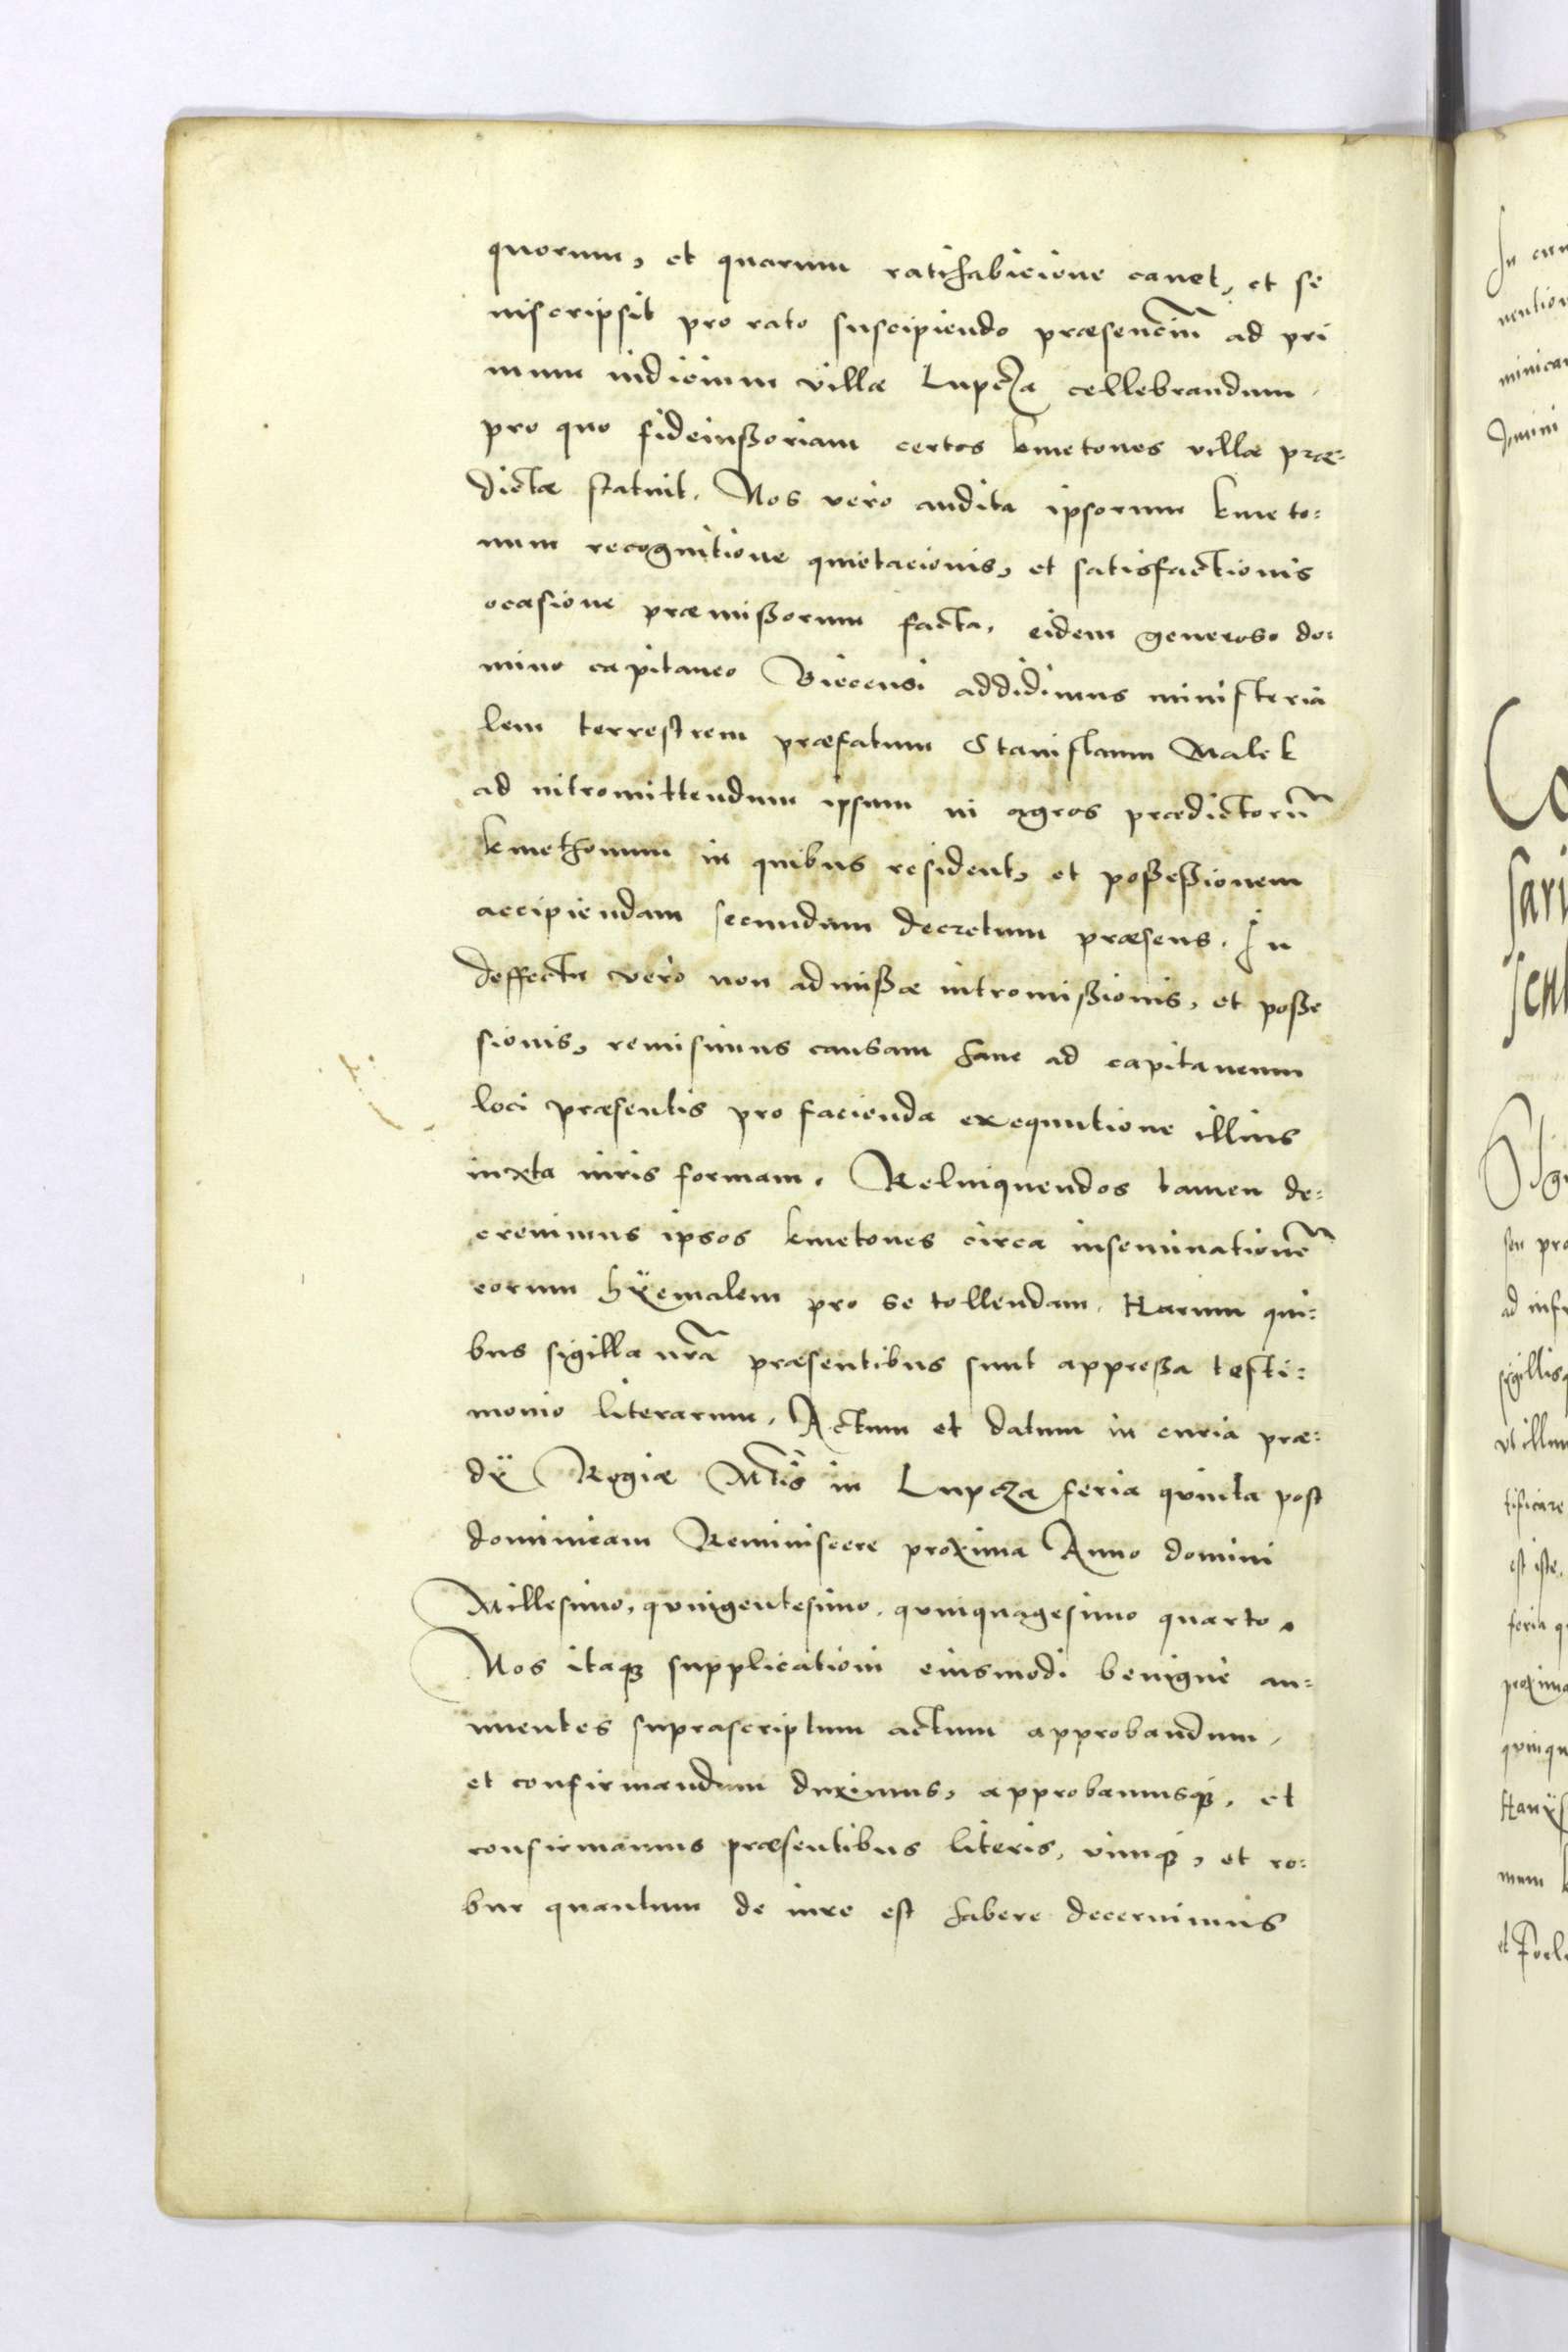 quorum, et quarum ratihabicione cavet, et se
inscripsit pro rato suscipiendo præsenciũ ad pri
mum iudicium villæ Lupcza cellebrandum.
pro quo fideiussoriam certos kmetones villæ præ=
dictæ statuit. Nos vero audita ipsorum kmeto=
num recognitione quietacionis, et satisfactionis
ocasione præmissorum facta, eidem generoso do=
mino capitaneo Biecensi addidimus ministeria
lem terrestrem præfatum Stanislaum Malek
ad intromittendum ipsum in agros prædictorũ
kmethonum in quibus resident, et possessionem
accipiendam secundum decretum præsens. In
deffectu vero non admissæ intromissionis, et posse
sionis, remisimus causam hanc ad capitaneum
loci præsentis pro facienda exequutione illius
iuxta iuris formam. Relinquendos tamen de=
crevimus ipsos kmetones circa inseminationẽ
eorum hÿemalem pro se tollendam. Harum qui=
bus sigilla nrã præsentibus sunt appressa testi=
monio literarum. Actum et datum in curia præ=
dÿ Regiæ Mtis in Lupcza feria quinta post
dominicam Reminiscere proxima Anno domini
Millesimo, quingentesimo, quinquagesimo quarto.
Nos itaq; supplicationi eiusmodi benigne an=
nuentes suprascriptum actum approbandum,
et confirmandum duximus, approbamusq;, et
confirmamus præsentibus literis, vimq;, et ro=
bur quantum de iure est habere decernimus